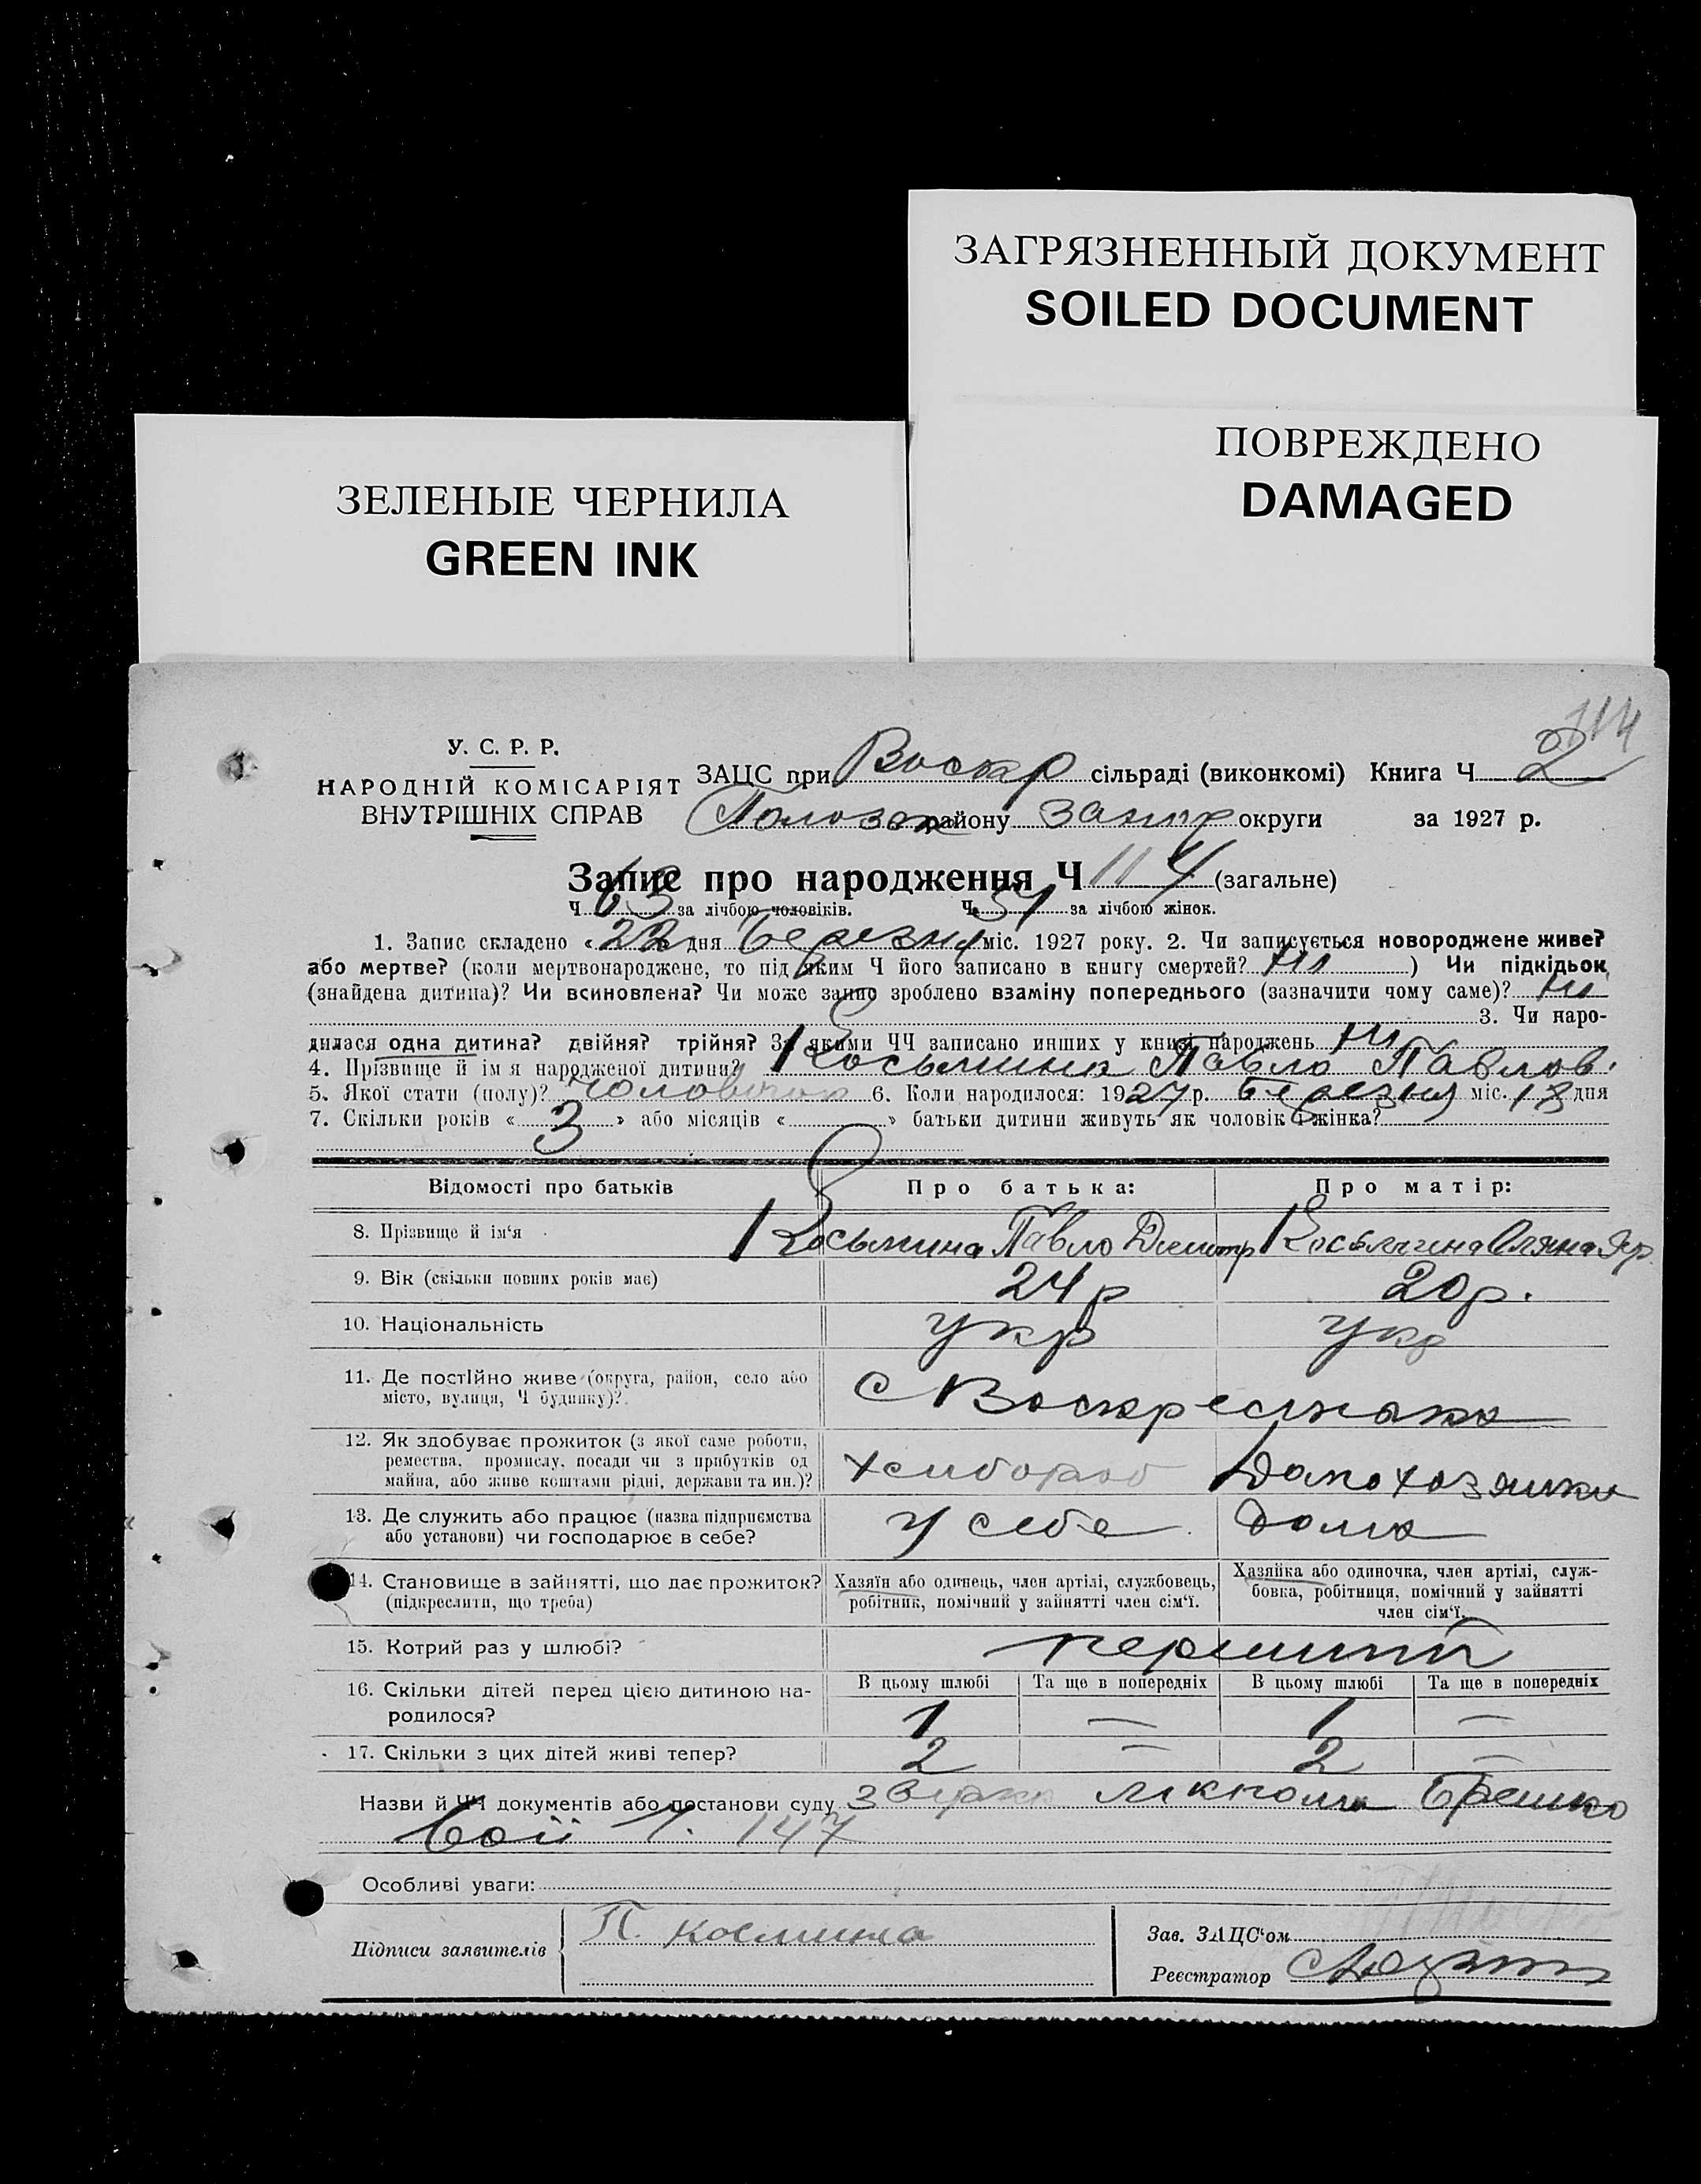 ЗАГРЯЗНЕННЫЙ ДОКУМЕНТ
SOILED DOCUMENT
ПОВРЕЖДЕНО
DAMAGED
ЗЕЛЕНЫЕ ЧЕРНИЛА
GREEN INK
114
У. С. Р. Р.
НАРОДНІЙ КОМІСАРІЯТ
ВНУТРІШНІХ СПРАВ
ЗАЦС при Воскр сільраді (виконкомі) Книга Ч 2
Пологов району Запор округи за 1927 р.
Запис про народження Ч 114 (загальне)
Ч 63 за лічбою чоловіків. Ч 51 за лічбою жінок.
1. Запис складено « 22 дня березня міс. 1927 року. 2. Чи записується новороджене живе?
або мертве? (коли мертвонароджене, то під яким Ч його записано в книгу смертей? ні ) Чи підкідьок
(знайдена дитина)? Чи всиновлена? Чи може запис зроблено взаміну попереднього (зазначити чому саме)? ні
3. Чи наро-
дилася одна дитина? двійня? трійня? За якими ЧЧ записано инших у книзі народжень ні
4. Прізвище й ім'я народженої дитини? Косьмина Павло Павлов.
5. Якої стати (полу)? чоловічої 6. Коли народилося: 1927 р. березня міс. 18 дня
7. Скільки років « 3 » або місяців « » батьки дитини живуть як чоловік і жінка?
Відомості про батьків Про батька: Про матір:
8. Прізвище й ім'я Косьмина Павло Дмитр Косьмина Оляна
9. Вік (скільки повних років має) 24 р 20 р.
10. Національність укр укр
11. Де постійно живе (округа, район, село або
місто, вулиця, Ч будинку)? с Воскресенка
12. Як здобуває прожиток (з якої саме роботи,
ремества, промислу, посади чи з прибутків од
майна, або живе коштами рідні, держави та ин.)? хлибороб Домохозяйка
13. Де служить або працює (назва підприємства
або установи) чи господарює в себе? у себе дома
14. Становище в зайнятті, що дає прожиток?
(підкреслити, що треба)
Хазяїн або одинець, член артілі, службовець,
робітник, помічний у зайнятті член сім'ї.
Хазяйка або одиночка, член артілі, служ-
бовка, робітниця, помічний у зайнятті
член сім'ї.
15. Котрий раз у шлюбі? перший
16. Скільки дітей перед цією дитиною на-
родилося?
В цьому шлюбі Та ще в попередніх В цьому шлюбі Та ще в попередніх
1 — 1 —
17. Скільки з цих дітей живі тепер? 2 — 2 —
Назви й ЧЧ документів або постанови суду
Ч. 147
Особливі уваги:
Підписи заявителів П. Космина
Зав. ЗАЦС'ом
Реєстратор